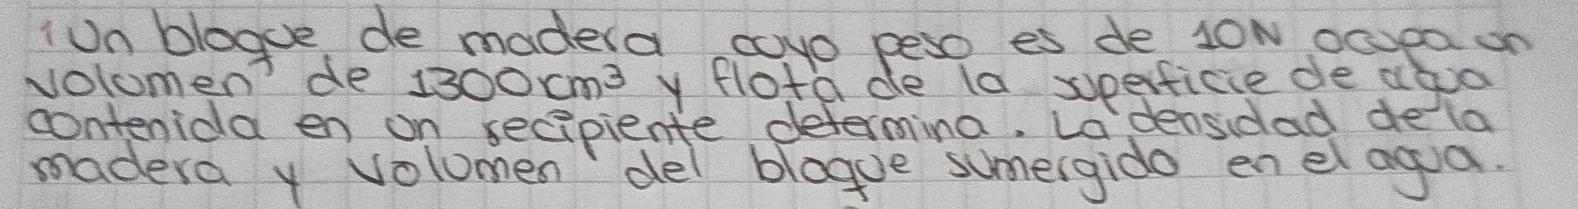 1 Un bloque de madera cuyo peso es de 10N ocupa un
volumen de 1300cm³ y flota de la superficie de agua
contenida en un recipiente determina. La densidad de la
madera y volumen del bloque sumergido en el agua.